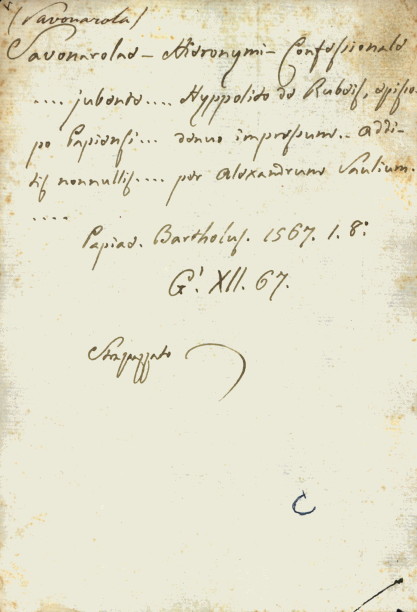 (Savonarola)
Savonarolae - Hieronymi - Confessionale
.... jubente .... Hyppolito de Rubeis, episco
po Papiensi ... denuo impressum .. addi
tis nonnullis .... per Alexandrum Saulium.
....
Papiae. Bartholus. 1567. 1. 8:
G! XII. 67.
Strapazzato
C